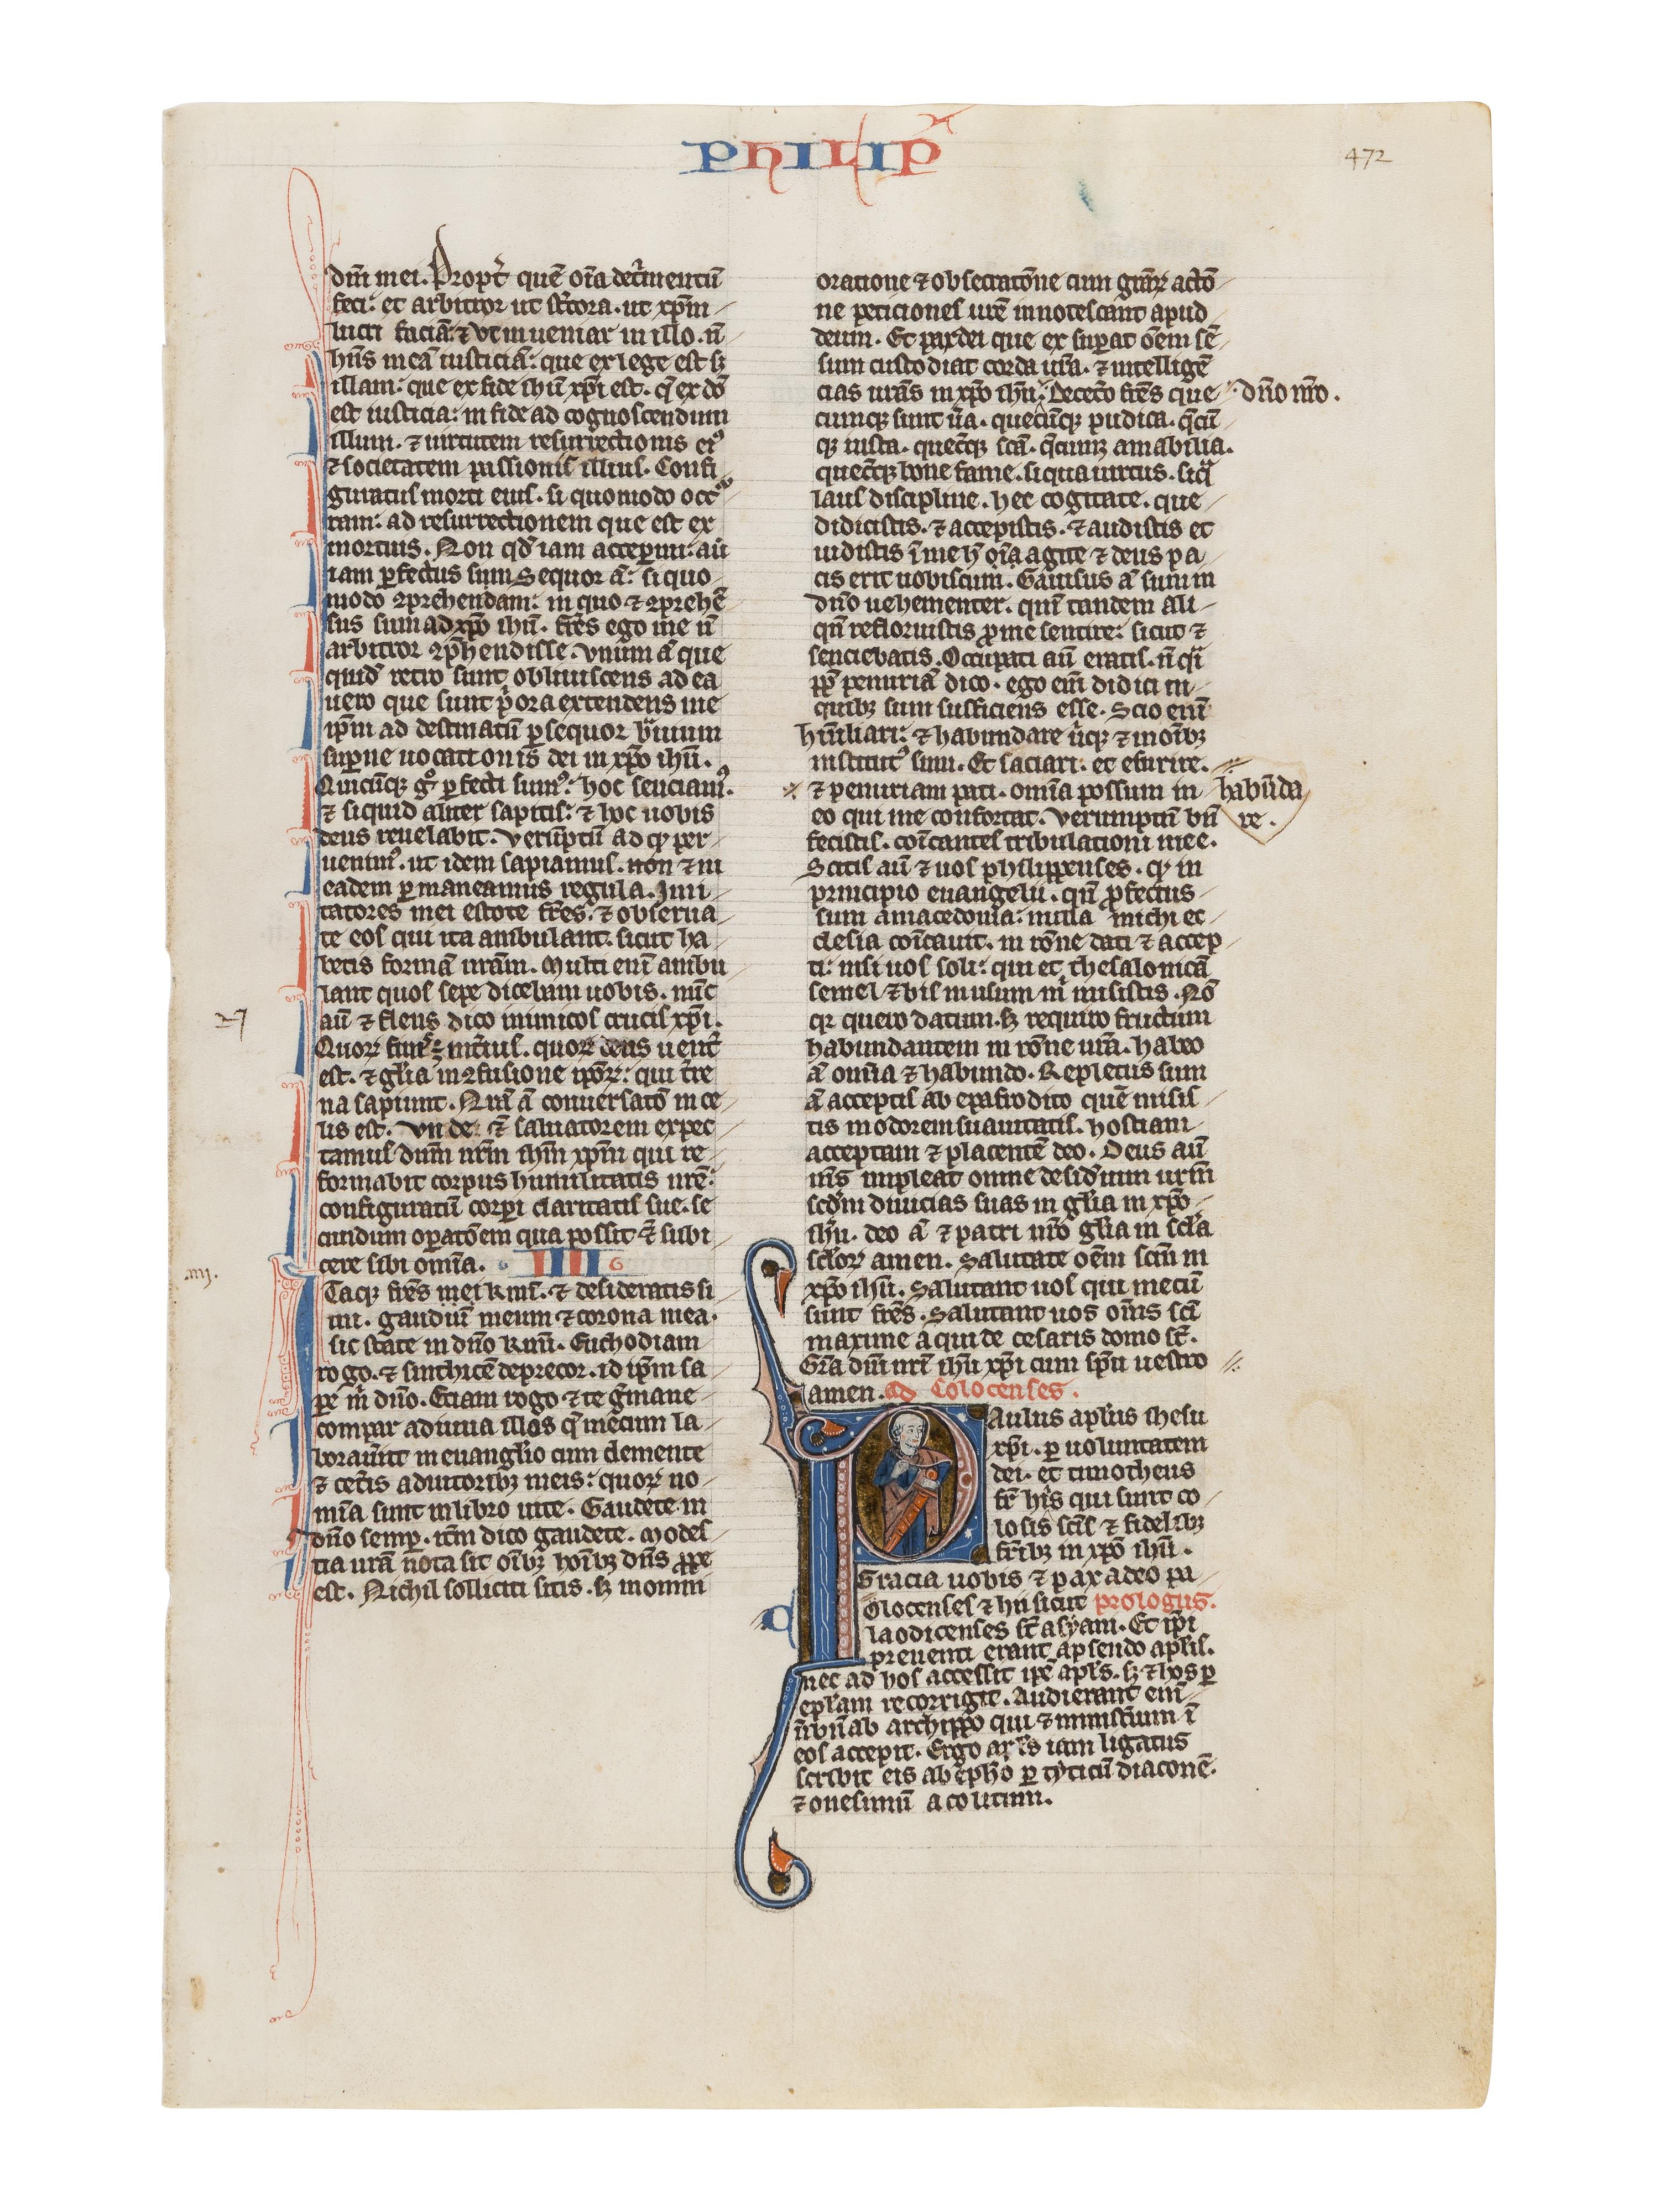 PHILIP̄
472
dn̄i mei. Propt̃ quē oīa det̃mentū
feci: et arbitror ut st̃cora. ut xp̄m
lucri faciā: ⁊ vt inueniar in illo. n̄
hn̄s meā iusticiā: que ex lege est sꝫ
illam: que ex fide ihū xp̄i est. q̄ ex dō
est iusticia: in fide ad cognoscendum
illum. ⁊ uirtutem resurrectionis eiꝰ
⁊ societatem passionis illius. Confi
guratus morti eius. si quomodo occ̄
ram: ad resurrectionem que est ex
mortuis. Non qd̄ iam acceperim: aū
iam ꝑfectus sum Sequor ā: si quo
modo ꝯprehendam: in quo ⁊ ꝯprehē
sus sum ad xp̄o ihū. fr̄es ego me n̄
arbitror ꝯp̄hendisse. vnum ā que
quid̄ retro sunt obliuiscens ad ea
uero que sunt p̄ora extendens me
ip̄m ad destinatū ꝑsequor bͥuium
suꝑne uocationis dei in xp̄o ihū.
Quicūqꝫ gͦ ꝑfecti sumꝰ: hoc senciamꝰ.
⁊ siquid aliter sapitis: ⁊ hoc uobis
deus reuelabit. verūptū ad qꝫ per
uenimꝰ. ut idem sapiamus. non ⁊ in
eadem ꝑmaneamus regula. Imi
tatores mei estote fr̄es. ⁊ obserua
te eos qui ita ambulant. sicut ha
betis formā urām. Multi enī ambu
lant quos sepe dicebam uobis. nūc
27
aū ⁊ flens dico inimicos crucis xp̄i.
Quoꝝ finis int̄itus. quoꝝ deus uent̄
est. ⁊ gl̄ia in ꝯfusione ip̄oꝝ: qui t̄re
na sapiunt. Nr̄a ā conuersatō in ce
lis est. vn de ⁊̄ saluatorem expec
tamus dn̄m nr̄m ihm̄ xp̄m qui re
formabit corpus humilitatis nr̄e:
configuratū corꝑi claritatis sue. se
cundum oꝑatōem qua possit ⁊̄ subi
cere sibi omīa. IIII
.iiii.
Taqꝫ fr̄es mei kmī. ⁊ desideratissi
mi. gaudiū meum ⁊ corona mea.
sic state in dn̄o kmī. Euchodiam
rogo. ⁊ sinthicē deprecor. id ip̄m sa
ꝑe in dn̄o. Etiam rogo ⁊ te g̃mane
compar adiuua illas q̄ mecum la
borauer̄t in euangl̄io cum clemente
⁊ cet̃is adiutoribꝫ meis: quoꝝ no
mīa sunt in libro uite. Gaudete in
dn̄o semꝑ. itm̄ dico gaudete. Modes
tia urā nota sit oībꝫ hoībꝫ dn̄s ꝓpe
est. Nichil solliciti sitis. sꝫ in omni
oratione ⁊ obsecratōne cum grāꝝ actō
ne peticiones urē innotescant apud
deum. Et pax dei que exsuꝑat ōem sē
sum custodiat corda urā. ⁊ intelligē
cias urās in xp̄o ihū. De cetō fr̄es que
dn̄o nr̄o.
cumqꝫ sunt ūa. quecūqꝫ pudica. q̄cū
qꝫ iusta. quec̄qꝫ scā. q̄cumqꝫ amabilia.
quec̄qꝫ bone fame. si qua uirtus. siq̄
laus discipline. hec cogitate. que
didicistis. ⁊ accepistis. ⁊ audistis et
uidistis ī me h̄ oīa agite ⁊ deus pa
cis erit uobiscum. Gauisus ā sum in
dn̄o uehementer. qm̄ tandem ali
qn̄ refloruistis ꝓ me sentire: sicut ⁊
senciebatis. Occupati aū eratis. n̄ qͣi
ꝓp̄ penuriā dico. ego enī didici in
quibꝫ sum sufficiens esse. Scio enī
humiliari: ⁊ habundare ubiqꝫ ⁊ in oībꝫ
institutꝰ sum. Et saciari. et esurire.
⁊ penuriam pati. omīa possum in
habūda
re.
eo qui me confortat. verumptū bn̄
fecistis. coīcantes tribulationi mee.
Scitis aū ⁊ uos philippenses. qꝫ in
principio euangelii. qn̄ ꝓfectus
sum a macedonia: nulla michi ec
clesia coīcauit. in rōne dati ⁊ accep
ti: nisi uos soli: qui et thesalonicā
semel ⁊ bis in usum m̄ misistis. Nō
qꝛ quero datum. sꝫ requiro fructum
habundantem in rōne urā. habeo
ā omīa ⁊ habundo. Repletus sum
ā acceptis ab epafrodito quē misis
tis in odorem suauitatis. hostiam
acceptam ⁊ placentē deo. Deus aū
ms̄ impleat omne desid̄ium urm̄
scd̄m diuicias suas in gl̄ia in xp̄o
ihū. deo ā ⁊ patri nr̄o gl̄ia in scl̄a
scl̄oꝝ amen. Salutate oēm scm̄ in
xp̄o ihū. Salutant uos qui mecū
sunt fr̄es. Salutant uos om̄s scī
maxime ā qui de cesaris domo st̄.
Grā dn̄i nr̄i ihū xp̄i cum sp̄u uestro
amen. ad Colocenses.
Paulus apl̄us ihesu
xp̄i. ꝑ uoluntatem
dei. et timotheus
fr̄ hiis qui sunt co
losis scīs ⁊ fidelibꝫ
fr̄ibꝫ in xp̄o ihū.
Gracia uobis ⁊ pax a deo pa
C
olocenses ⁊ hii sicut prologus.
laodicenses st̄ asyani. Et ip̄i
preuenti erant a psendo apl̄is.
nec ad hos accessit ip̄e apl̄s. sꝫ ⁊ hos ꝑ
epl̄am recorrigit. Audierant enī
ūbū ab archippo qui ⁊ minist̄ium ī
eos accepit. Ergo apl̄s iam ligatus
scribit eis ab eph̄o ꝑ tyticū diaconē.
⁊ onesimū acolitum.